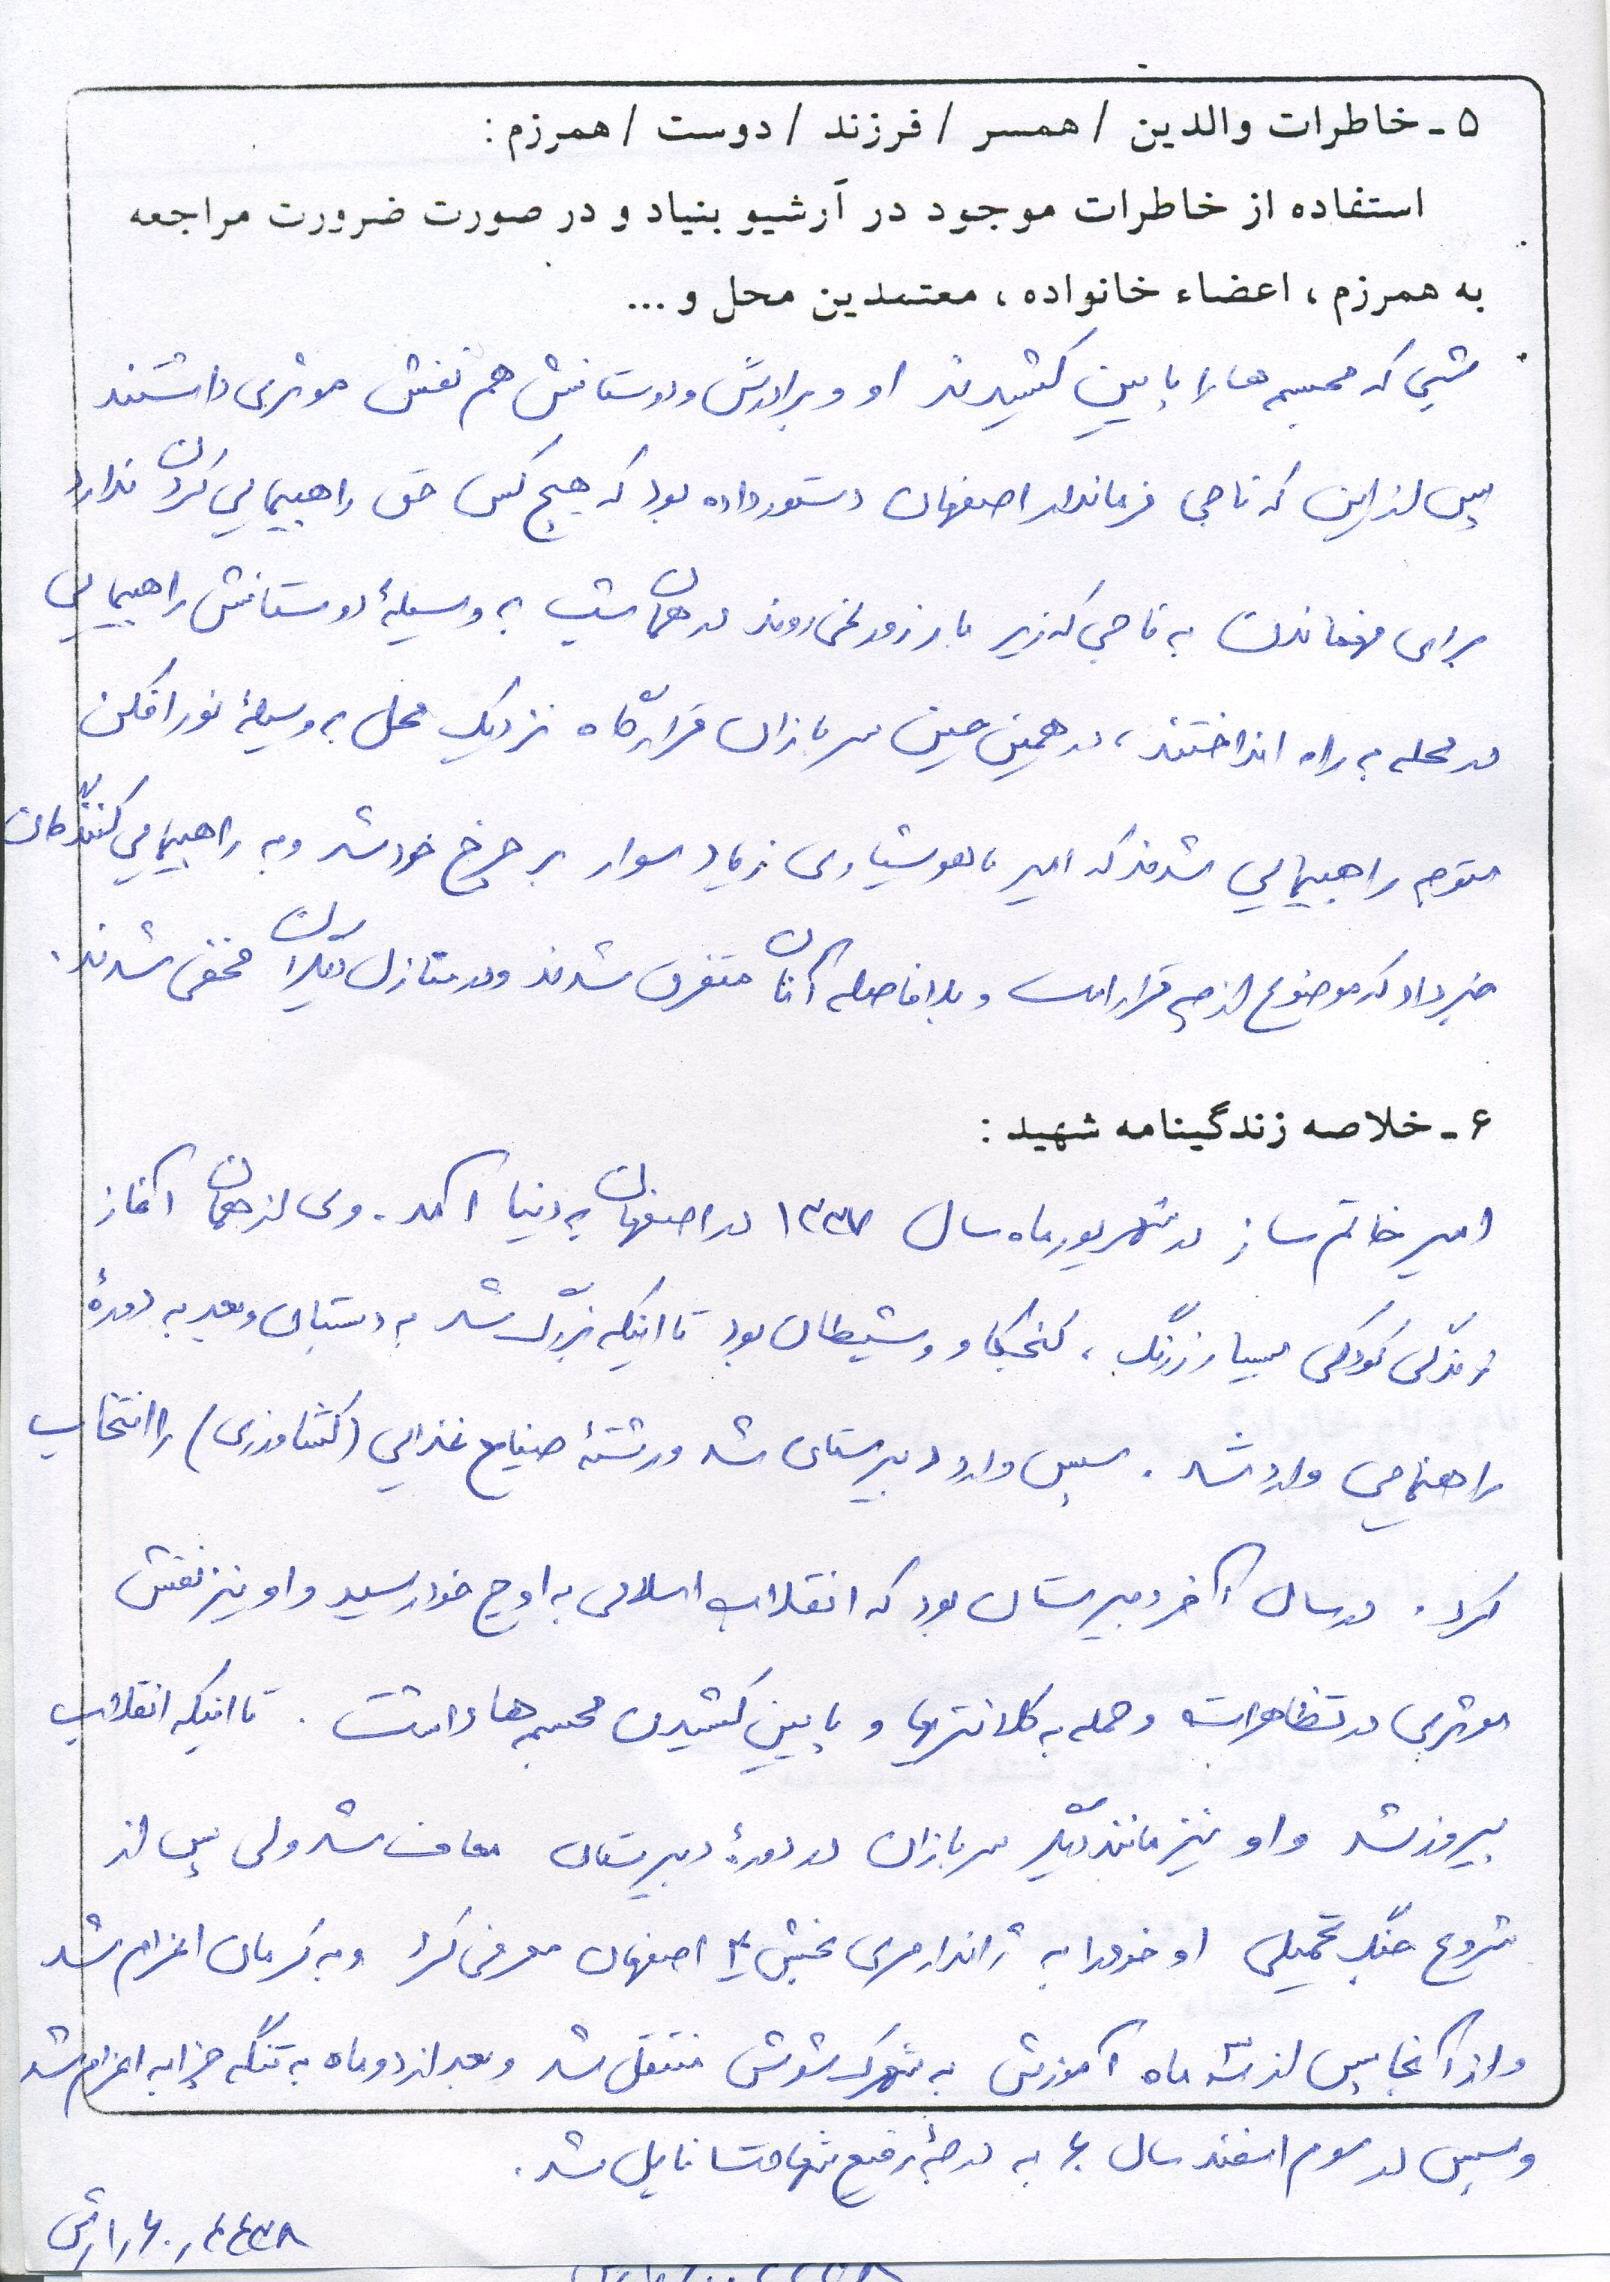 ۵ - خاطرات والدین / همسر / فرزند / دوست / همرزم :
استفاده از خاطرات موجود در آرشیو بنیاد و در صورت ضرورت مراجعه
به همرزم ، اعضاء خانواده ، معتمدین محل و ...
شبی که مجسمه ها را پایین کشیدند او و برادرش و دوستانش هم نقش موثری داشتند
پس از این که ناجی فرماندار اصفهان دستور داده بود که هیچ کس حق راهپیمایی کردن ندارد
برای فهماندن به ناجی که زیر بار زور نمی روند در همان شب به وسیلهٔ دوستانش راهپیمایی
در محله به راه انداختند ، در همین حین سربازان قرارگاه نزدیک محل به وسیلهٔ نورافکن
متوجه راهپیمایی شدند که امیر با هوشیاری زیاد سوار بر چرخ خود شد و به راهپیمایی کنندگان
خبر داد که موضوع از چه قرار است و بلافاصله آنان متفرق شدند و در منازل دیگران مخفی شدند .
۶ - خلاصه زندگینامه شهید :
امیر خاتم ساز در شهریور ماه سال در اصفهان به دنیا آمد . وی از همان آغاز
زندگی کودکی بسیار زرنگ ، کنجکاو و شیطان بود تا اینکه بزرگ شد به دبستان و بعد به دورهٔ
راهنمایی وارد شد . سپس وارد دبیرستان شد و رشتهٔ صنایع غذایی (کشاورزی) را انتخاب
کرد . در سال آخر دبیرستان بود که انقلاب اسلامی به اوج خود رسید و او نیز نقش
موثری در تظاهرات و حمله به کلانتریها و پایین کشیدن مجسمه ها داشت . تا اینکه انقلاب
پیروز شد و او نیز مانند دیگر سربازان در دورهٔ دبیرستان معاف شد ولی پس از
شروع جنگ تحمیلی او خود را به ژاندارمری بخش ۴ اصفهان معرفی کرد و به کرمان اعزام شد
و از آنجا پس از سه ماه آموزش به شهرک شوش منتقل شد و بعد از دو ماه به تنگه چزابه اعزام شد
و سپس در سوم اسفند سال ۶۰ به درجهٔ رفیع شهادت نایل شد .